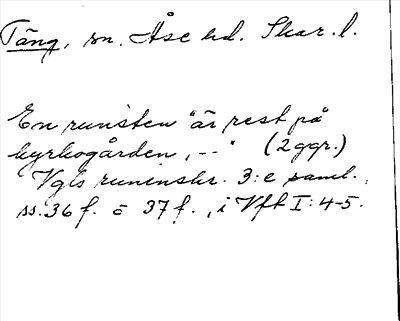 Täng, sn. Åse hd. Skar. l.
En runsten "är rest på
kyrkogården, --" (2 ggr.)
Vgls runinskr. 3:e saml.,
ss. 36 f. o 37 f., i Vft I: 4-5.